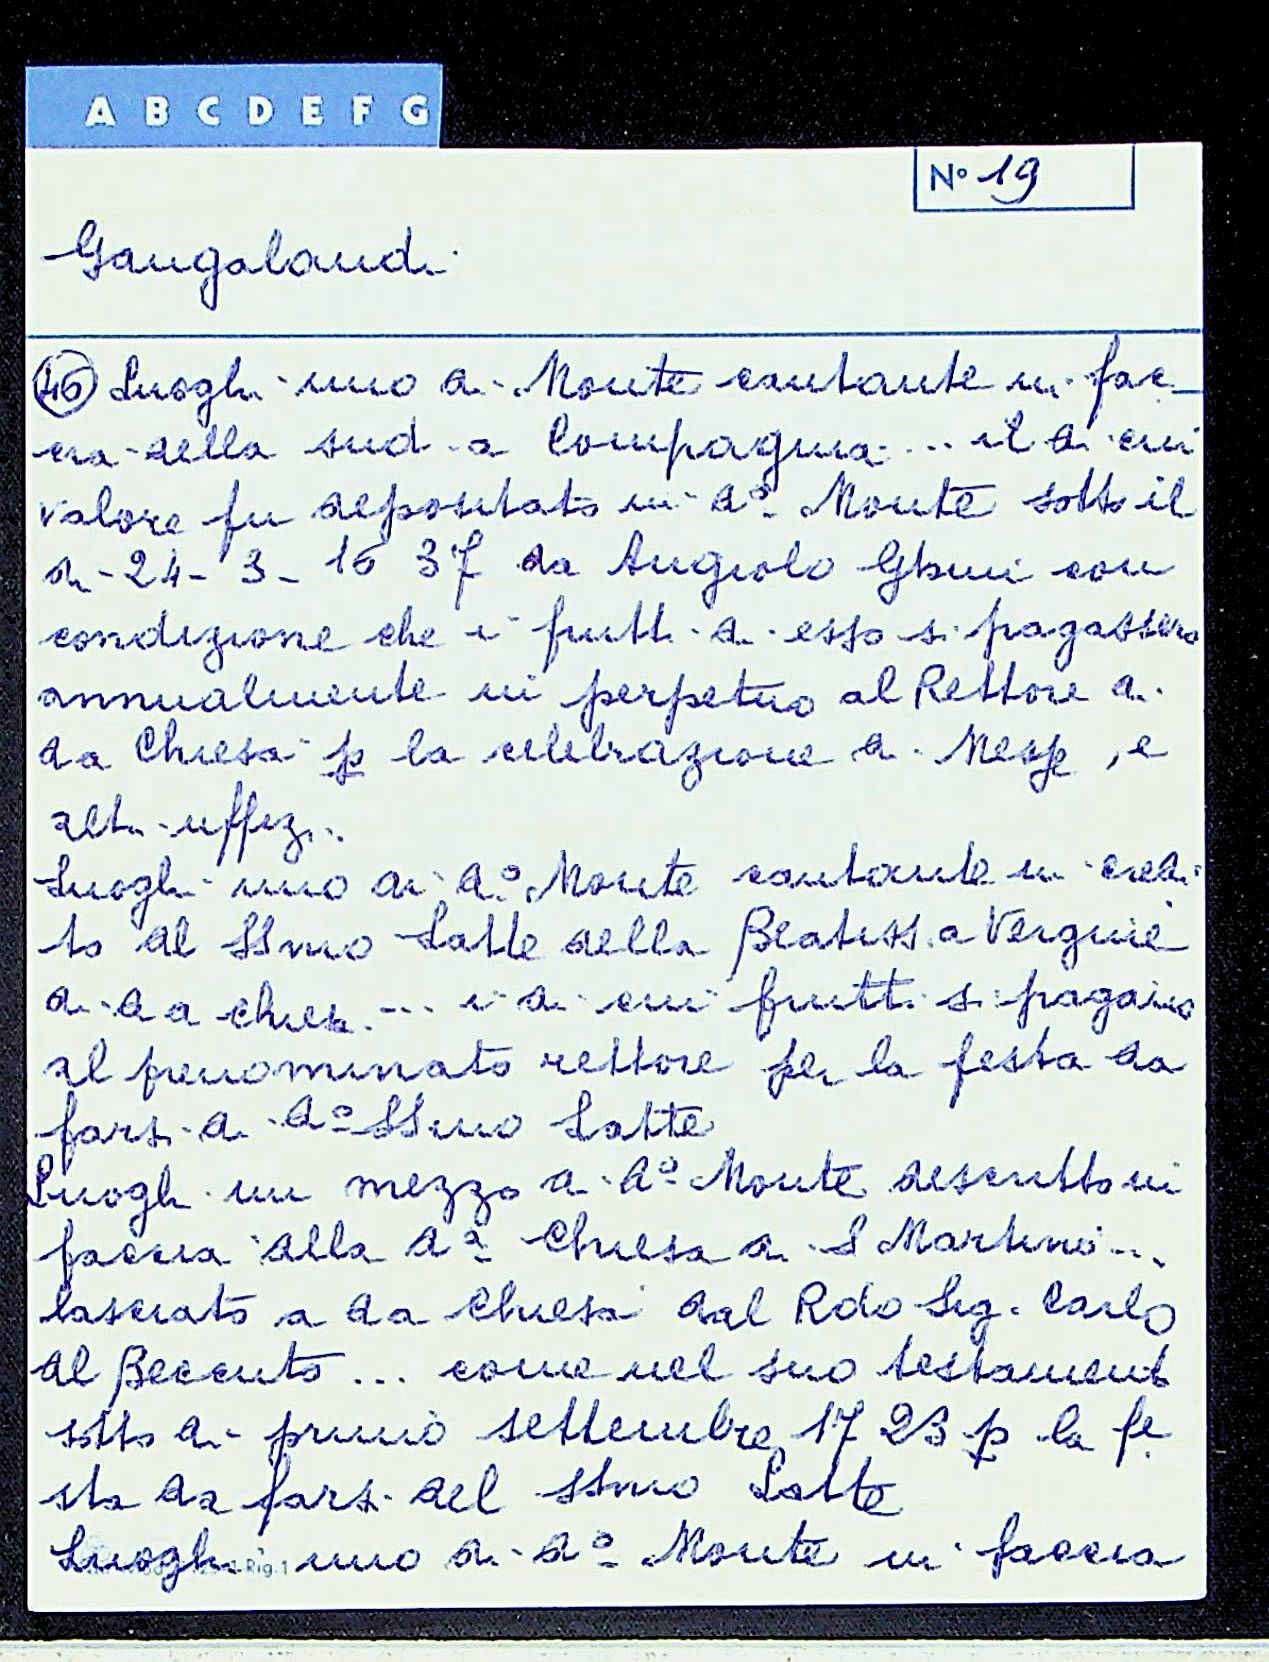 A B C D E F G
N° 19
Gangalandi
46 Luoghi uno di Monte cantante in fac-
cia della sud.a Compagnia ... il di cui
valore fu depositato in d.° Monte sotto il
di - 24 - 3 - 16 37 da Angiolo con
condizione che i frutti di esso si pagassero
annualmente in perpetuo al Rettore di
da Chiesa p la celebrazione di Messe, e
altri uffizi..
Luoghi uno di d.° Monte cantante in credi
to al SSmo Latte della Beatiss.a Vergine
di da chiesa ... i di cui frutti si pagaino
al prenominato rettore per la festa da
farsi di d° SSmo Latte
Luoghi un mezzo di d° Monte descritto in
faccia alla da Chiesa di S Martino ...
lasciato a da Chiesa dal Rdo Sig. Carlo
del Beccuto ... come nel suo testament
sotto di primo settembre 1723 p la fe
sta da farsi del SSmo Latte
Luoghi uno di d° Monte in faccia